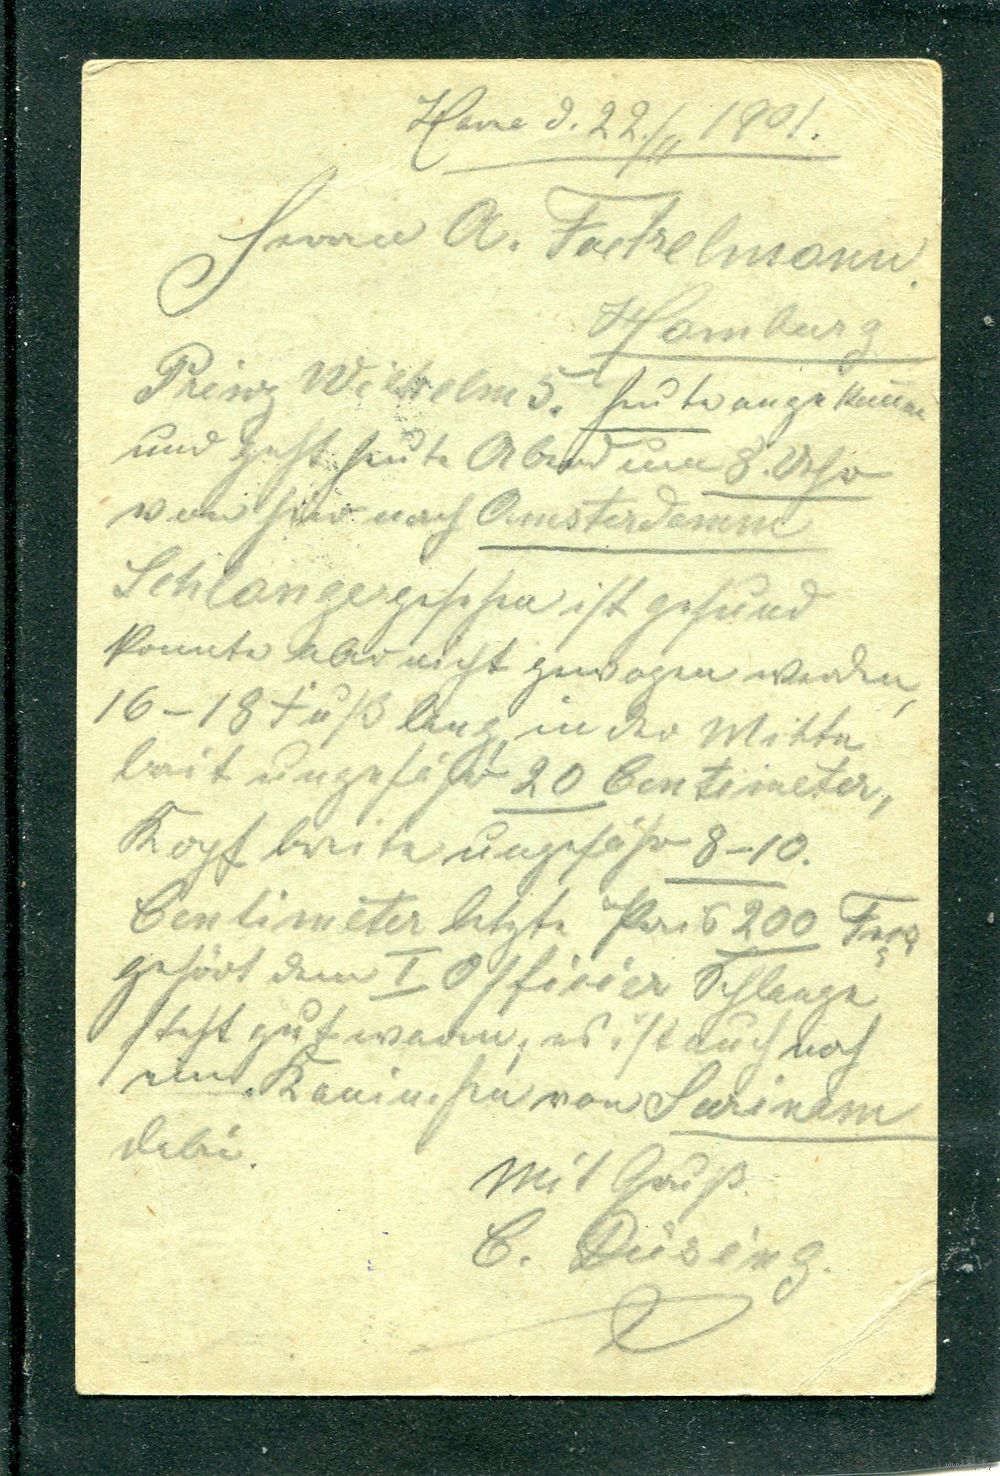 Havre d. 22./11 1901.
Herrn A. Fockelmann.
Hamburg
Prinz Wilhelm 5. heute angekommen
und geht heute Abend um 8. Uhr
von hier nach Amsterdamm
Schlange gesehen ist gesund
konnte aber nicht gewogen werden,
16–18 Fuß lang, in der Mitte
breit ungefähr 20 Centimeter,
Kopf breite ungefähr 8–10.
Centimeter letzte Preis 200 Frcs
gehört dem I Offizier Schlange
steht gut warm, es ist auch noch
ein Kaninchen von Surinam
dabei.
Mit Gruß.
C. Düsing.